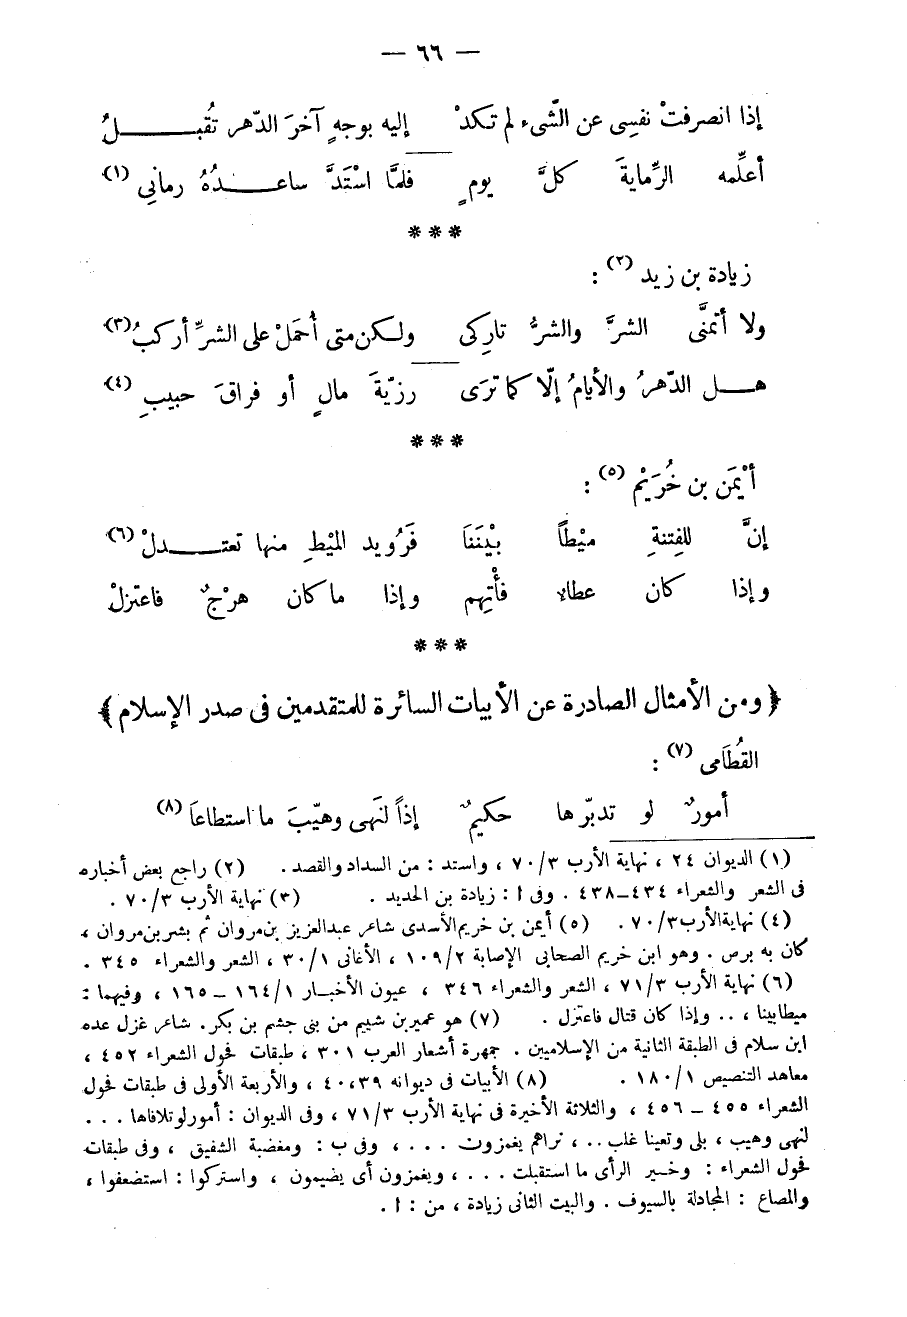 — ٦٦ —
إذا انصرفتْ نفسِى عن الشّىء لم تكدْ إليه بوجهٍ آخرَ الدّهرِ تُقبلُ
أعلِّمه الرِّمايةَ كلَّ يومٍ فلمَّا اسْتَدَّ ساعدُهُ رمانِى (١)
***
زيادة بن زيد (٢) :
ولا أتمنَّى الشرَّ والشرُّ تارِكى ولكن متى أُحمَلْ على الشرِّ أركبُ (٣)
هل الدّهرُ والأيامُ إلّا كما تَرَى رزيّةَ مالٍ أو فراقَ حبيبِ (٤)
***
أيْمَن بن خُرَيْم (٥) :
إنَّ للفِتنةِ ميْطاً بيْنَنَا فَرُويد الميْطِ منها تعتدلْ (٦)
وإذا كان عطاء فأْتِهم وإذا ما كان هرْجٌ فاعتزلْ
***
﴿ ومن الأمثال الصادرة عن الأبيات السائرة للمتقدمين فى صدر الإسلام ﴾
القُطَامى (٧) :
أمورٌ لو تدبّرها حكيمٌ إذاً لنَهى وهيّبَ ما استطاعَا (٨)
(١) الديوان ٢٤ ، نهاية الأرب ٣/٧٠ ، واستد : من السداد والقصد . (٢) راجع بعض أخباره
فى الشعر والشعراء ٤٣٤–٤٣٨ . وفى ا : زيادة بن الحديد . (٣) نهاية الأرب ٣/٧٠ .
(٤) نهاية الأرب ٣/٧٠ . (٥) أيمن بن خريم الأسدى شاعر عبدالعزيز بن مروان ثم بشر بن مروان ،
كان به برص . وهو ابن خريم الصحابى الإصابة ٢/١٠٩ ، الأغانى ١/٣٠ ، الشعر والشعراء ٣٤٥ .
(٦) نهاية الأرب ٣/٧١ ، الشعر والشعراء ٣٤٦ ، عيون الأخبار ١/١٦٤ – ١٦٥ ، وفيهما :
ميطابينا ، .. وإذا كان قتال فاعتزل . (٧) هو عمير بن شييم من بنى جشم بن بكر . شاعر غزل عده
ابن سلام فى الطبقة الثانية من الإسلاميين . جمهرة أشعار العرب ٣٠١ ، طبقات فحول الشعراء ٤٥٢ ،
معاهد التنصيص ١/١٨٠ . (٨) الأبيات فى ديوانه ٣٩،٤٠ ، والأربعة الأولى فى طبقات فحول
الشعراء ٤٥٥ – ٤٥٦ ، والثلاثة الأخيرة فى نهاية الأرب ٣/٧١ ، وفى الديوان : أمور لو تلافاها . . .
لنهى وهيب ، بلى وتعينا غلب .. ، تراهم يغمزون . . . ، وفى ب : ومغضبة الشفيق ، وفى طبقات
فحول الشعراء : وخير الرأى ما استقبلت . . . ، ويغمزون أى يضيمون ، واستركوا : استضعفوا ،
والمصاع : المجادلة بالسيوف . والبيت الثانى زيادة ، من : ا .